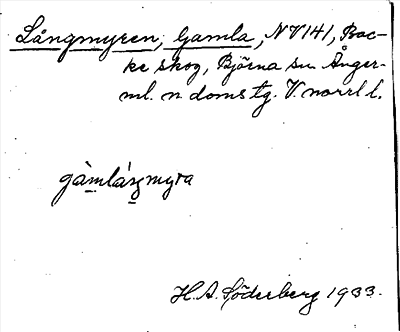 Långmyren, Gamla, NV141, Bac-
ke skog, Björna sn Ånger-
ml. n doms tg. V. norrl l.
gàmláŋmyra
H. A. Söderberg 1933.